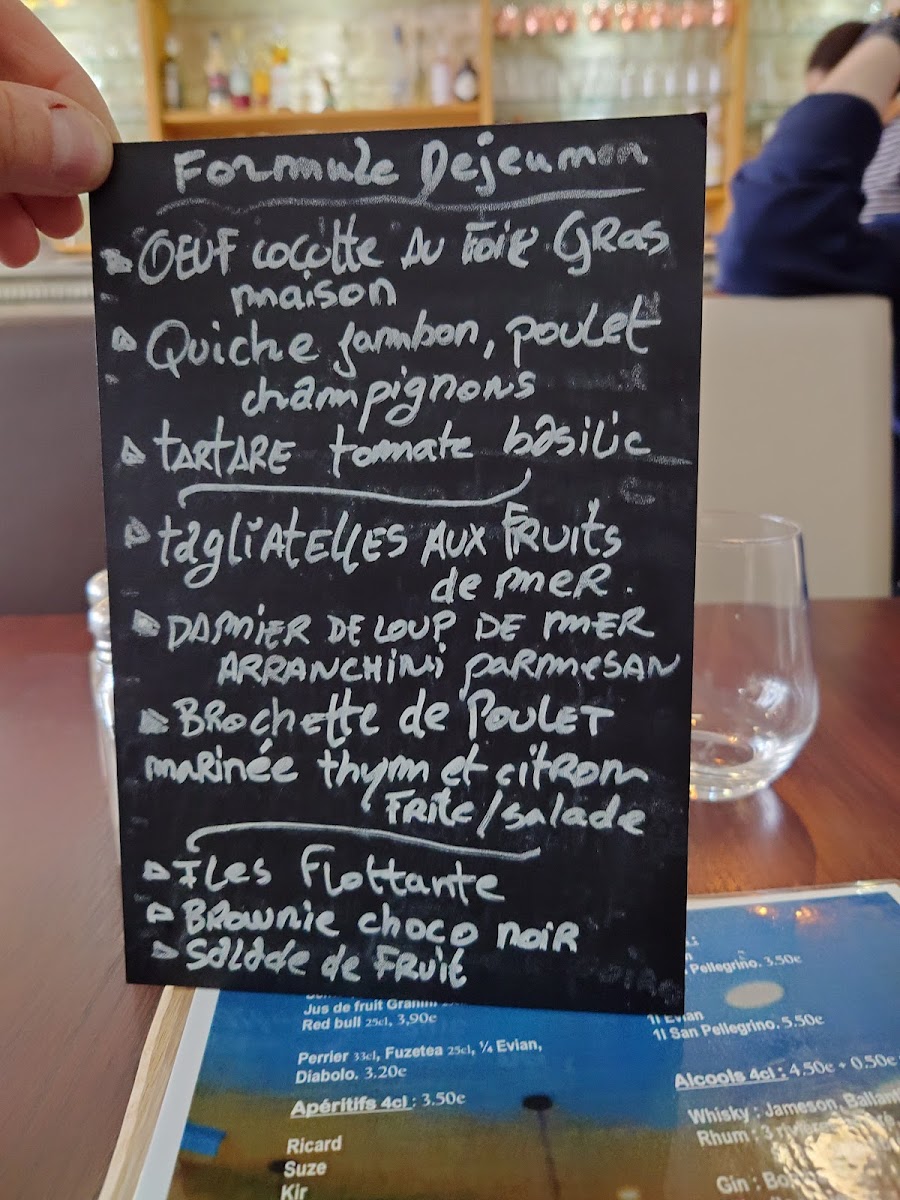 Formule Dejeuner
OEUF cocotte Au Foie Gras
maison
Quiche jambon, poulet
champignons
TARTARE tomate basilic
tagliATELLES AUX FRUITS
de mER.
DAMIER DE LOUP DE MER
ARRANCHINI PARMESAN
BROchette de POULET
marinée thym et citron
FRITE/salade
ILes Flottante
BROWNIE choco noiR
Salade de FRUIT
Jus de fruit Granini
Red bull 25cl, 3,90€
Perrier 33cl, Fuzetea 25cl, ¼ Evian,
Diabolo. 3.20€
Apéritifs 4cl : 3.50€
Ricard
Suze
Kir
Pellegrino. 3.50€
1l Evian
1l San Pellegrino. 5.50€
Alcools 4cl : 4.50€ + 0.50€
Whisky : Jameson, Ballant
Rhum : 3
Gin :